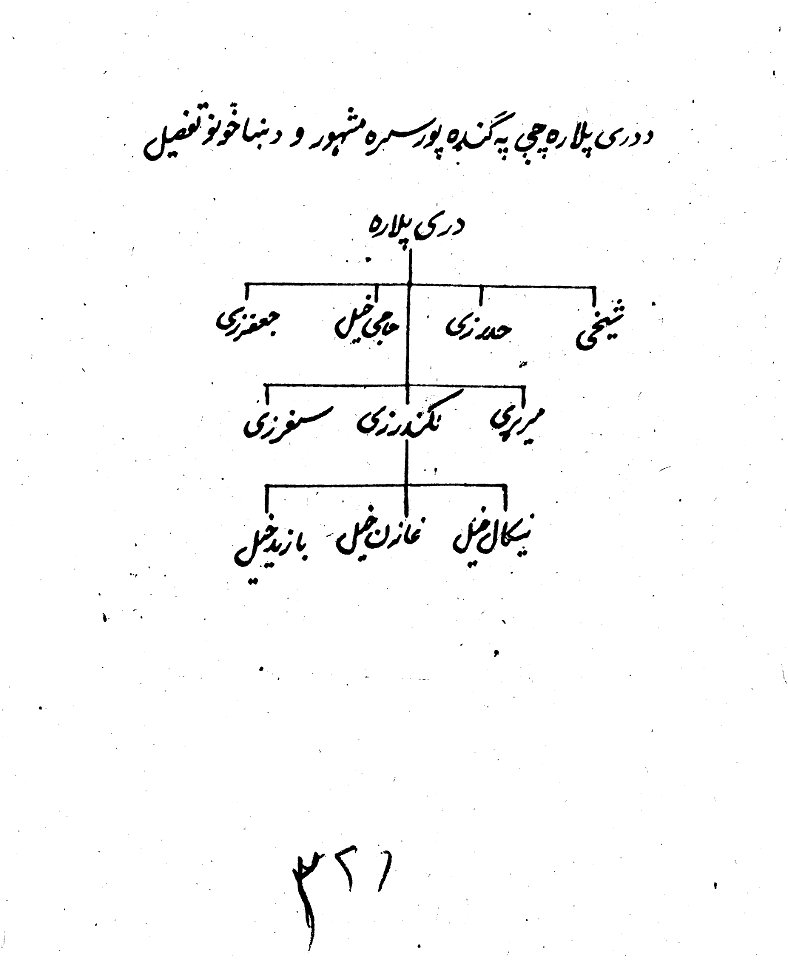 د دری پلاره چی په گنده پور سره مشهور و د ښاخونو تفصیل
دری پلاره
شیخی حدرزی حاجی خیل جعفرزی
میرپری سکندرزی سفرزی
نیکال خیل غازن خیل بازید خیل
۳۲۱